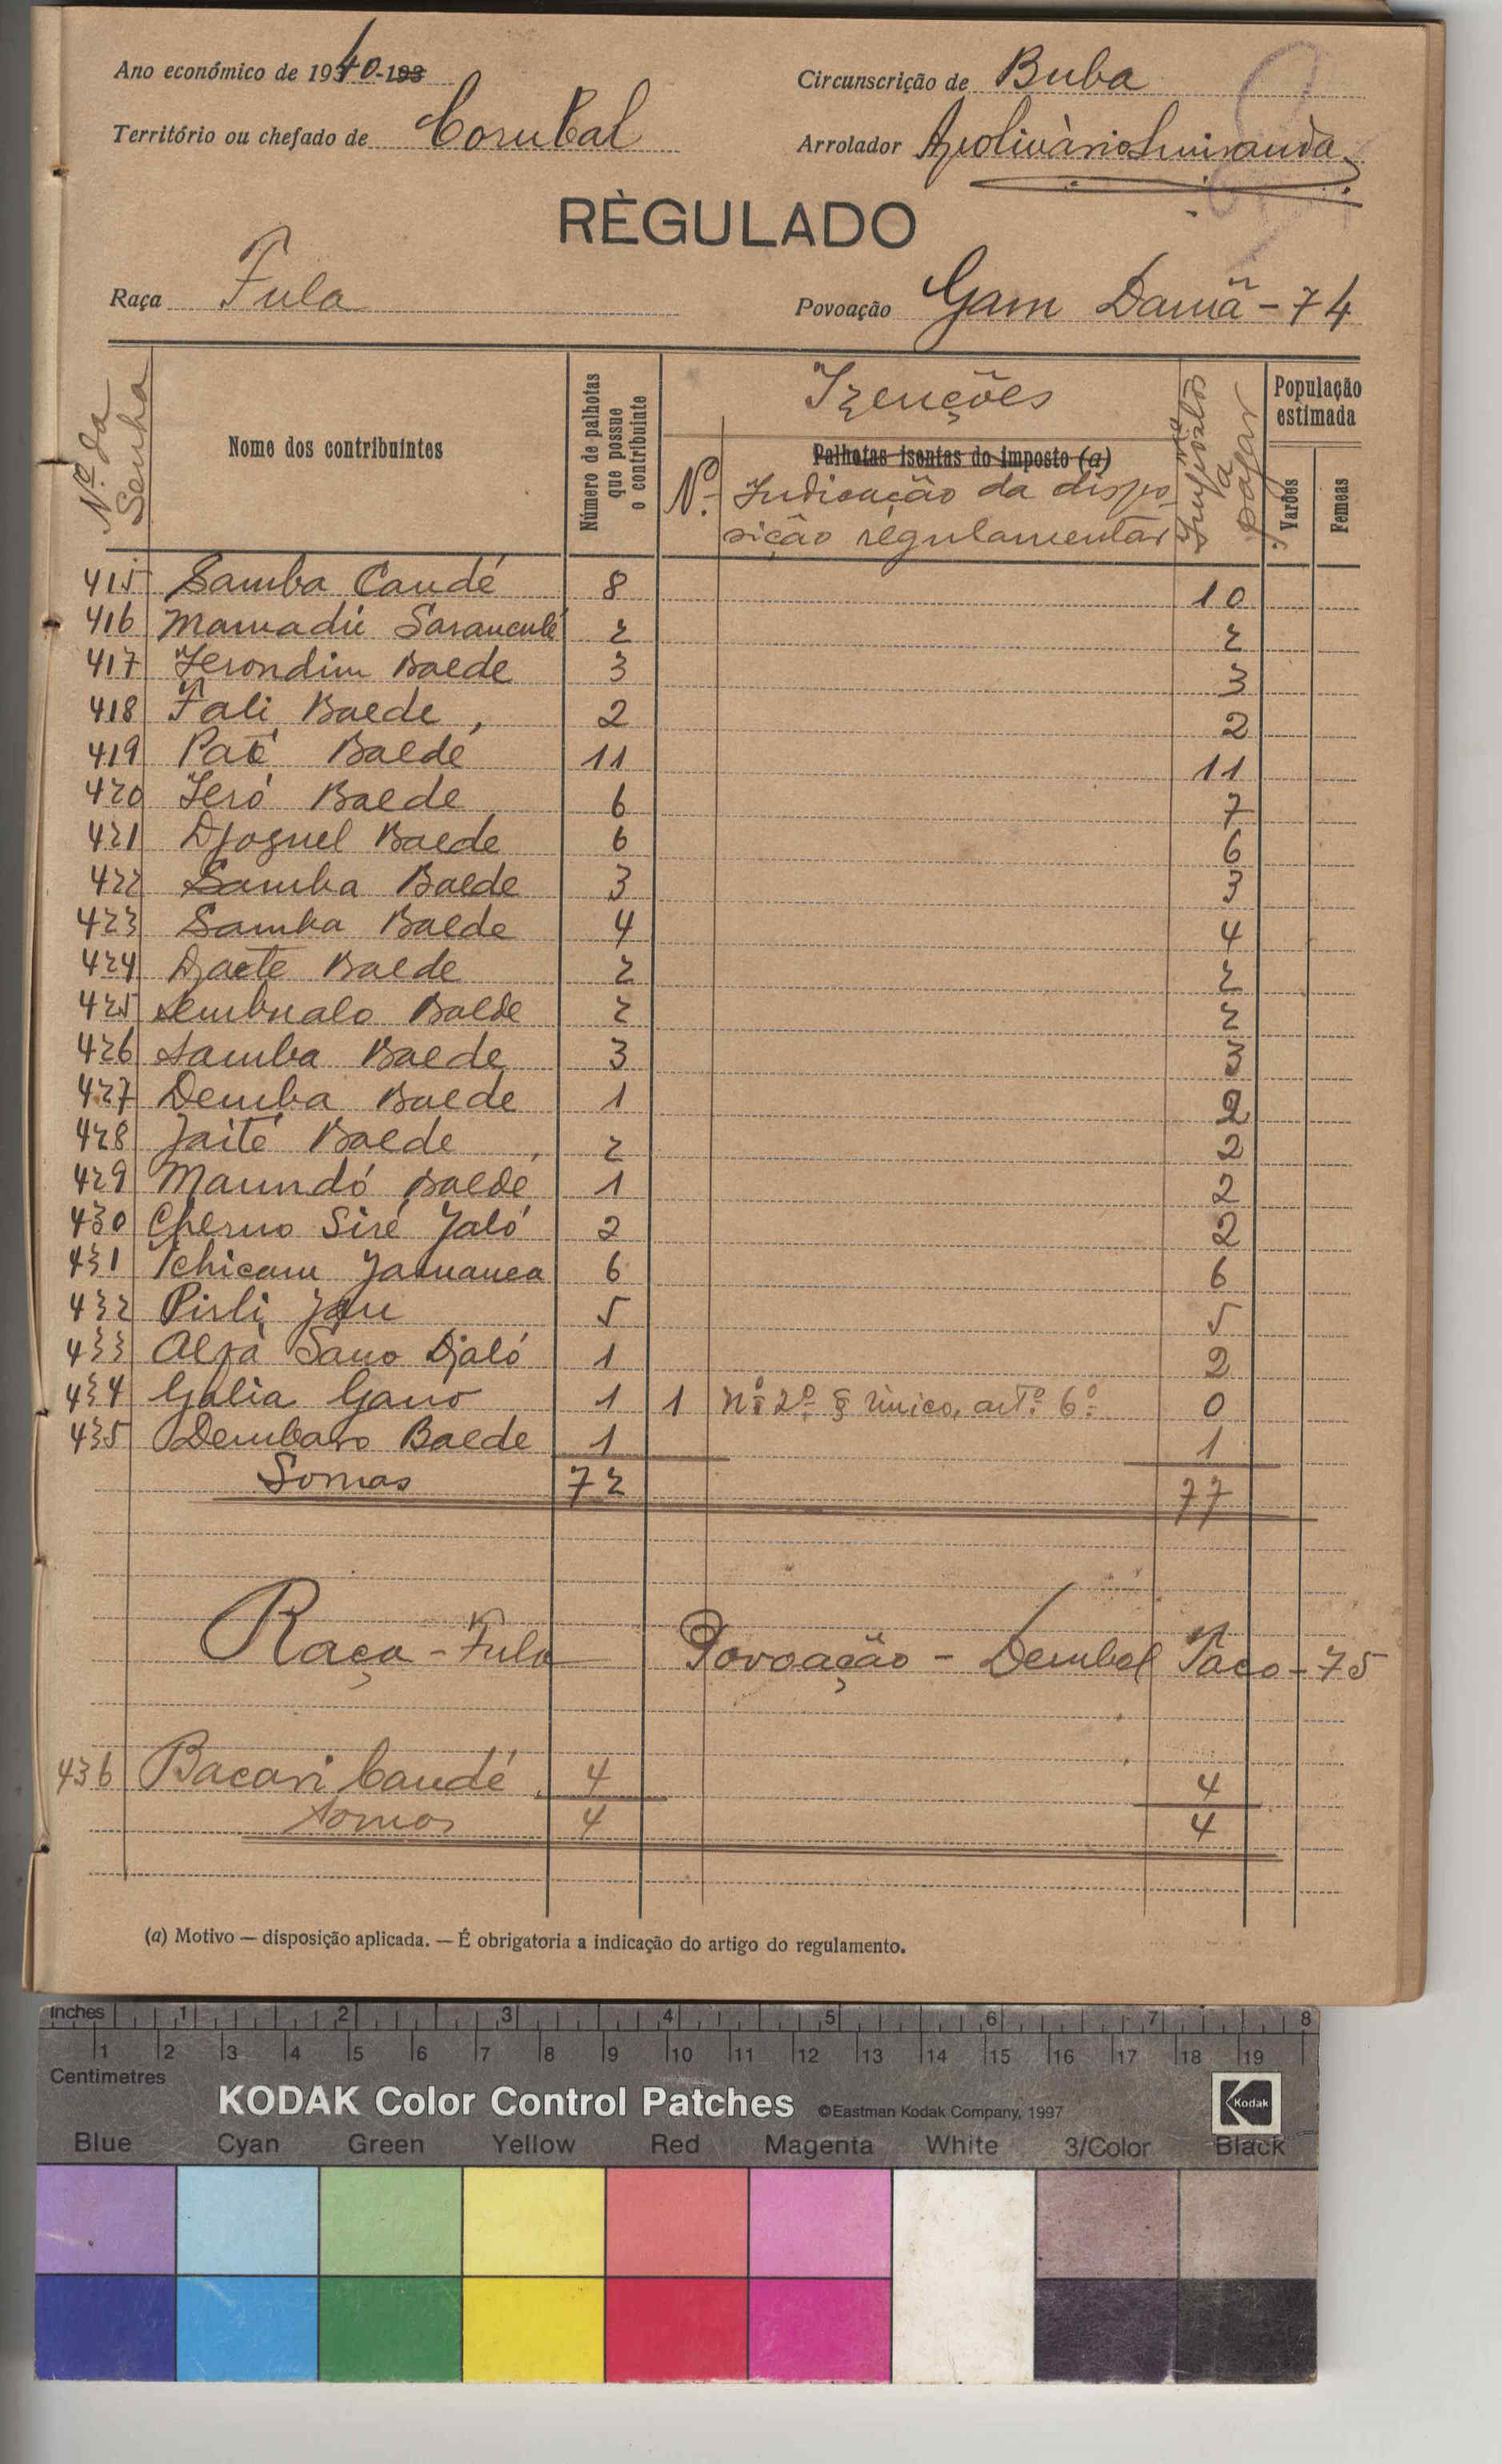 Ano económico de 1940-193
Circunscrição de Buba
Território ou chefado de Corubal
Arrolador
RÈGULADO
Raça Fula
Povoação Gam Damã - 74
Nº da Senha
Nome dos contribuintes
Número de palhotas que possue o contribuinte
Izenções
Palhotas isentas do imposto (a)
Nº Indicação da disposição regulamentar
Impostos a pagar
População estimada
Varões
Femeas
415 Samba Candé 8 10
416 Mamadú Saranculé 2 2
417 Jerondim Baldé 3 3
418 Fali Balde 2 2
419 Paté Baldé 11 11
420 Jeró Balde 6 7
421 Djoguel Balde 6 6
422 Samba Balde 3 3
423 Samba Balde 4 4
424 Djaeté Balde 2 2
425 Sembualo Balde 2 2
426 Samba Balde 3 3
427 Demba Balde 1 2
428 Jaité Balde 2 2
429 Maundó Balde 1 2
430 Cherno Siré Jaló 2 2
431 Tchicam Jamanca 6 6
432 Pirli Jau 5 5
433 Alfà Sano Djaló 1 2
434 Galia Gano 1 1 nº 2º § único, artº 6º 0
435 Dembaro Balde 1 1
Somas 72 77
Raça - Fula Povoação - Dembel Taco - 75
436 Bacari Candé 4 4
Somas 4 4
(a) Motivo — disposição aplicada. — É obrigatoria a indicação do artigo do regulamento.
Inches 1 2 3 4 5 6 7 8
1 2 3 4 5 6 7 8 9 10 11 12 13 14 15 16 17 18 19
Centimetres
KODAK Color Control Patches ©Eastman Kodak Company, 1997 Kodak
Blue Cyan Green Yellow Red Magenta White 3/Color Black